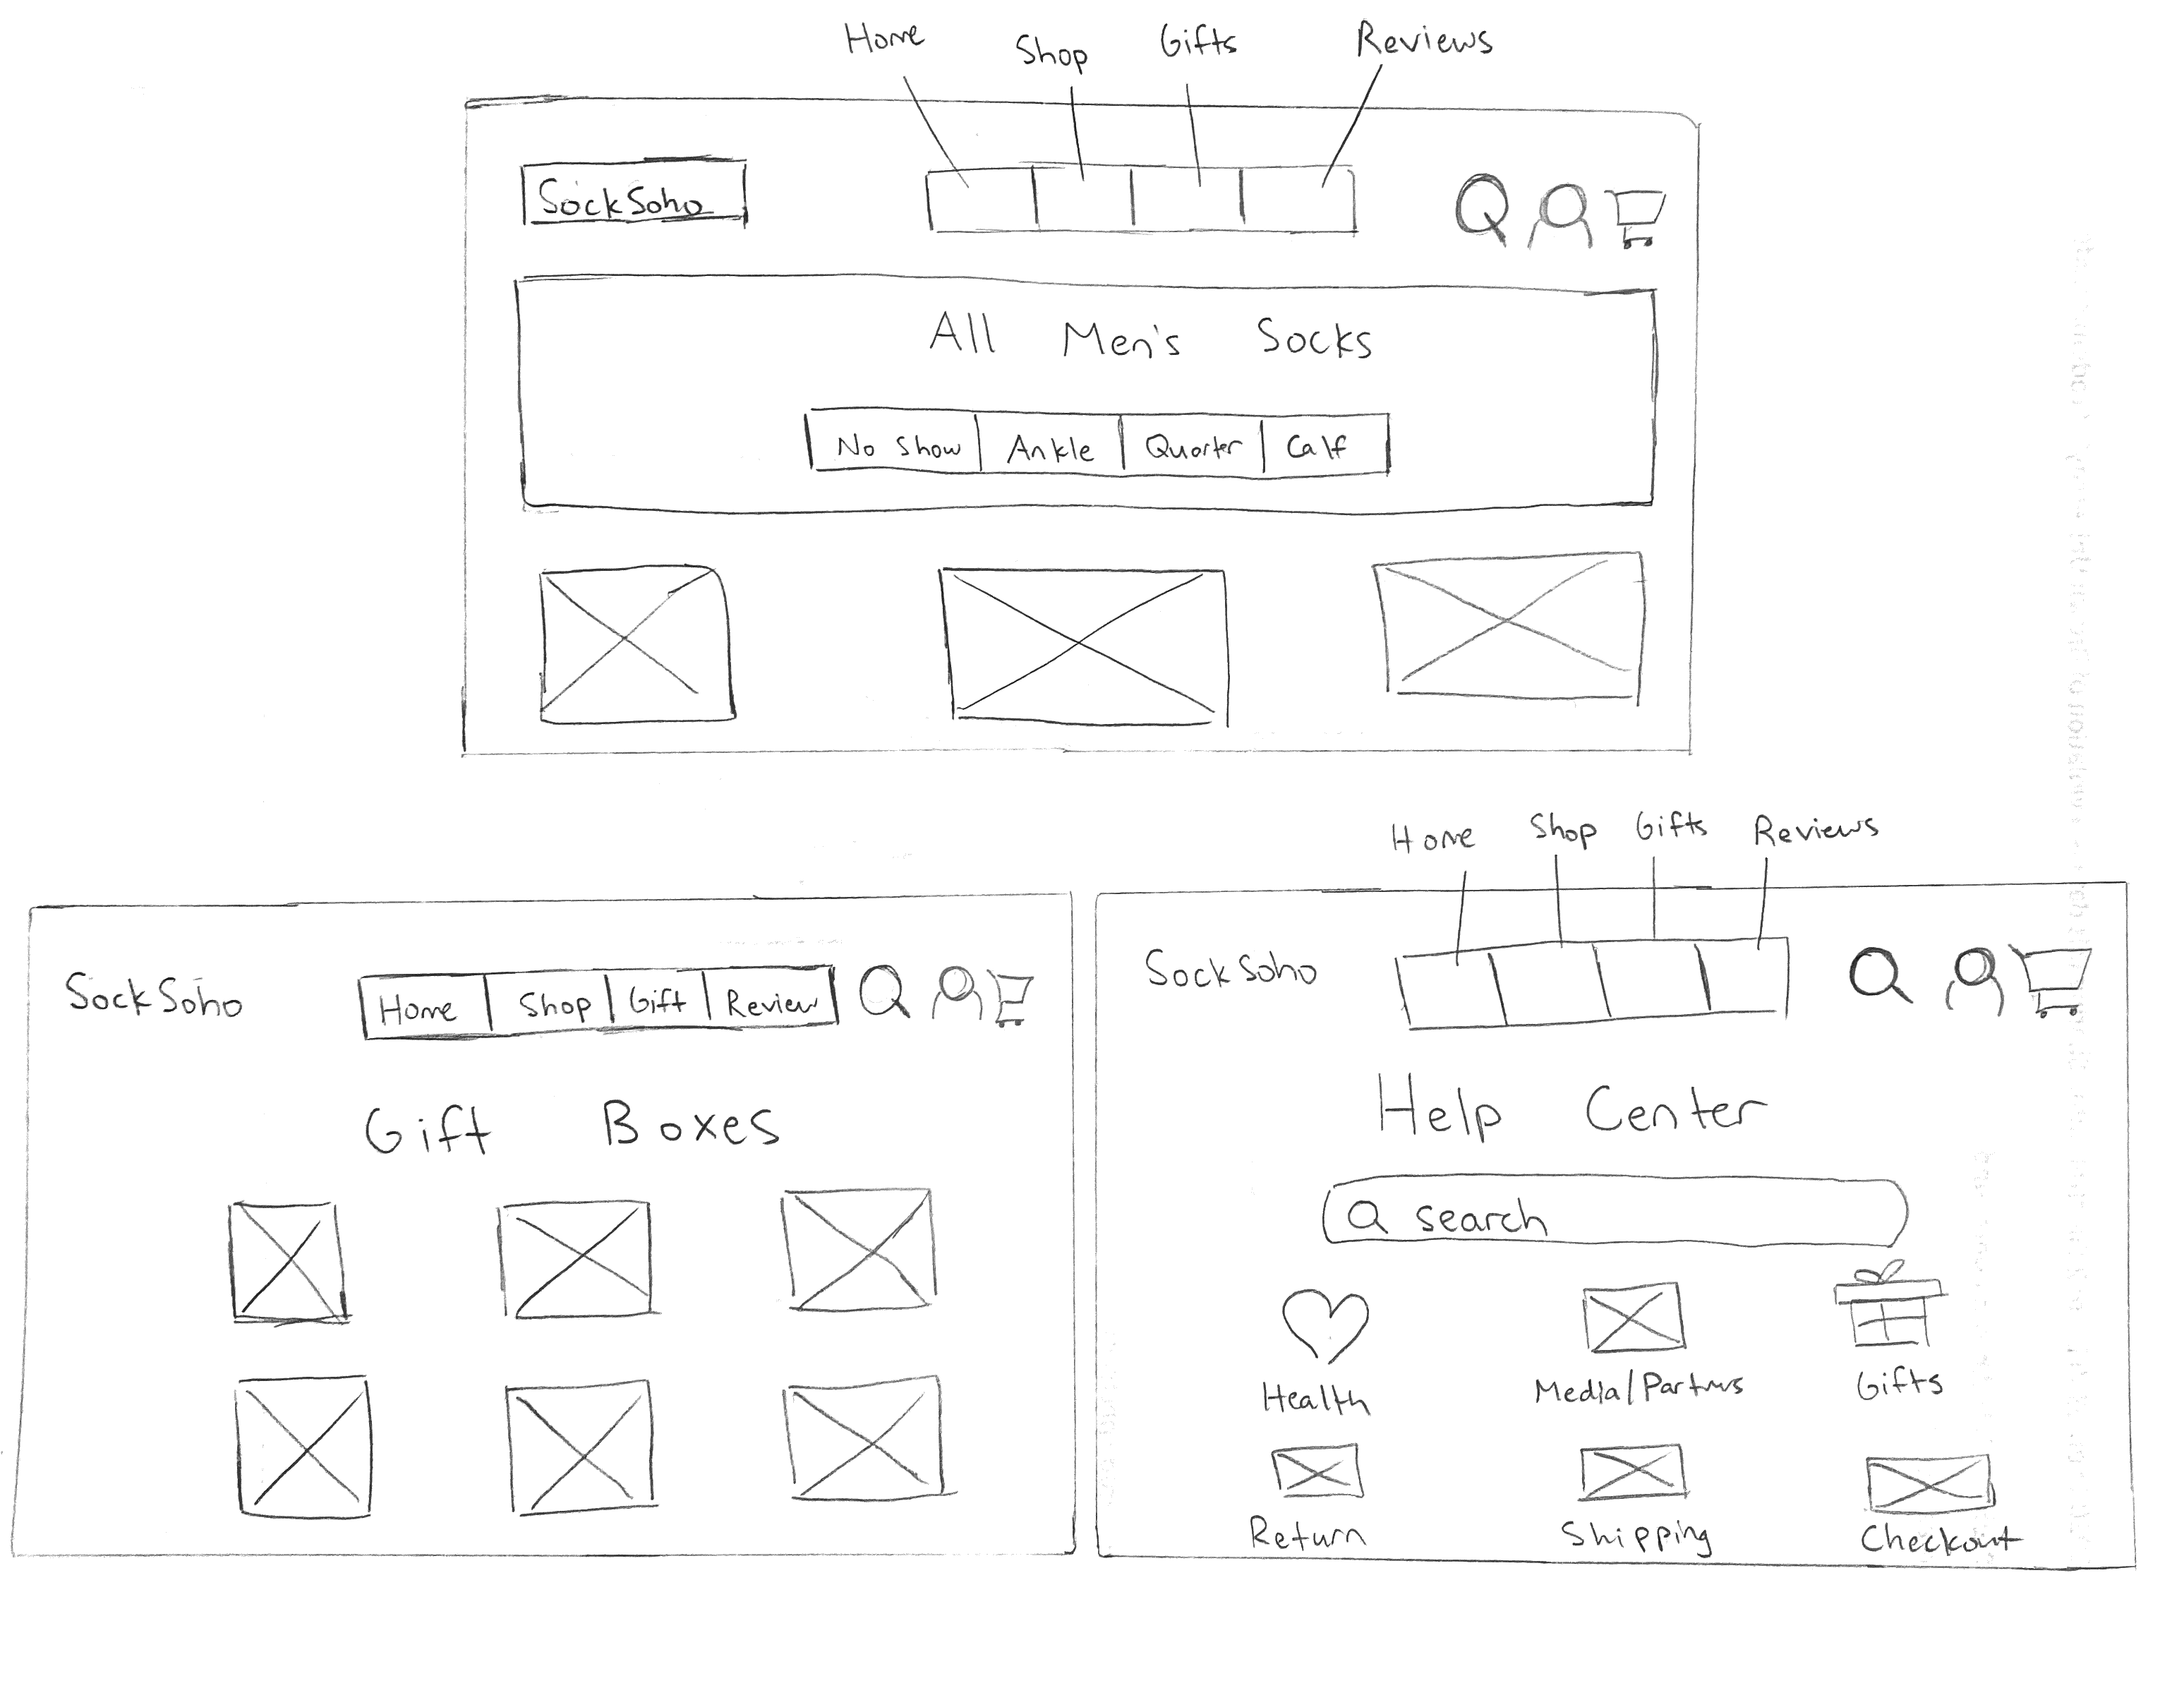 Home Shop Gifts Reviews
SockSoho
All Men's Socks
No Show Ankle Quarter Calf
Home Shop Gifts Reviews
SockSoho Home Shop Gift Review
Gift Boxes
SockSoho
Help Center
search
Health Media/Partnrs Gifts
Return Shipping Checkout